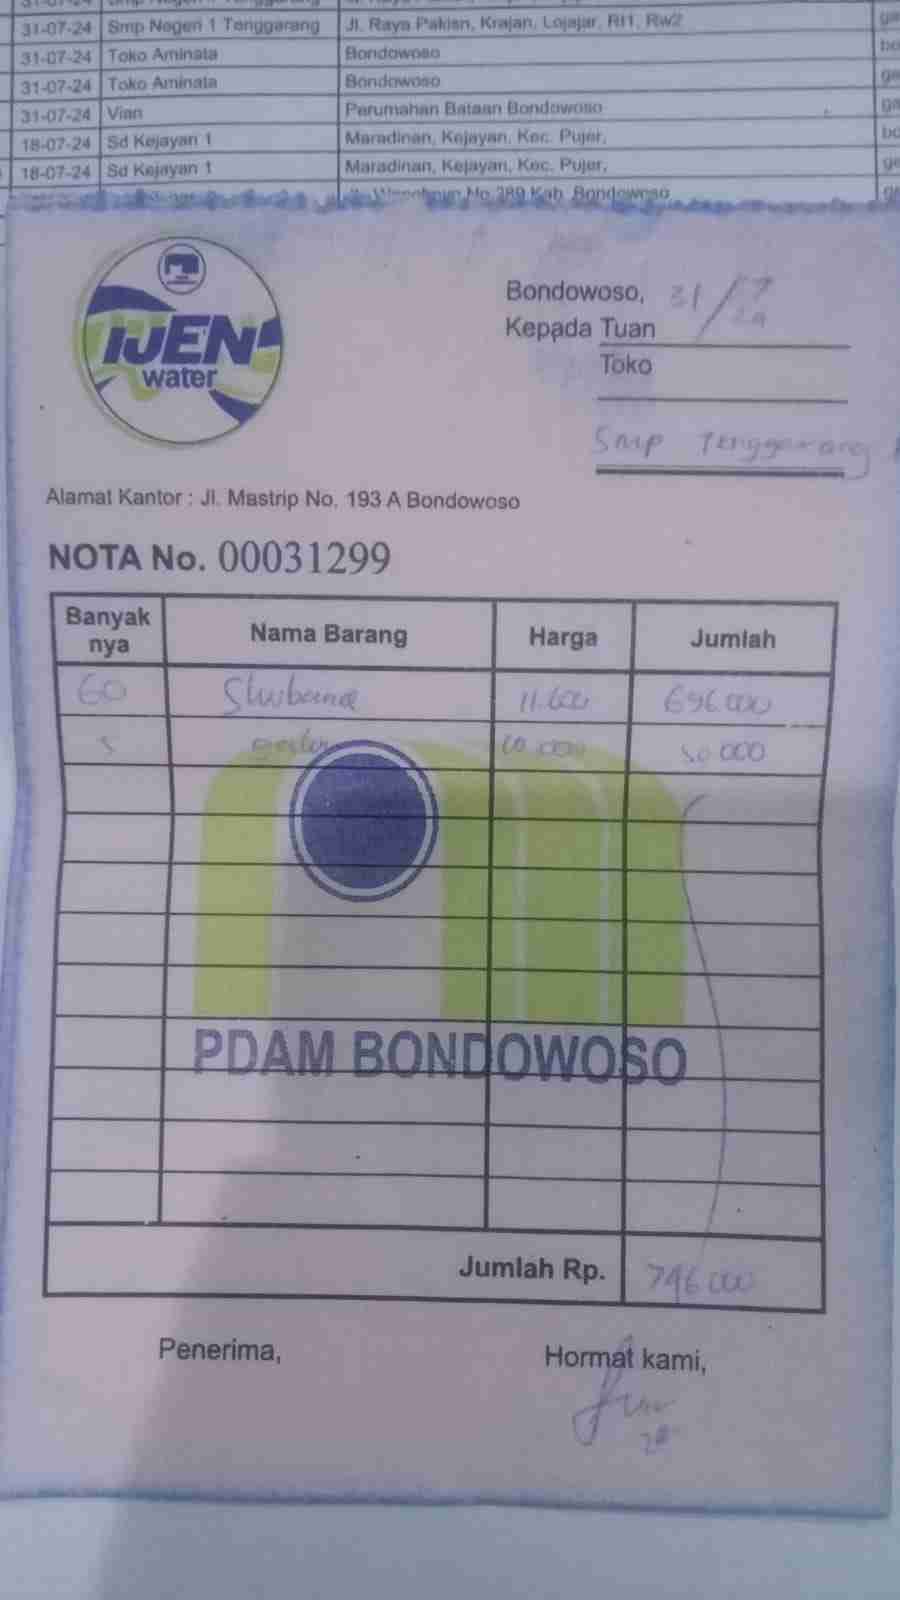 31-07-24 Smp Negeri 1 Tenggarang Jl. Raya Pakisn, Krajan, Lojajar, Rt1, Rw2
31-07-24 Toko Aminata Bondowoso
31-07-24 Toko Aminata Bondowoso
31-07-24 Vian Perumahan Bataan Bondowoso
18-07-24 Sd Kejayan 1 Maradinan, Kejayan, Kec. Pujer,
18-07-24 Sd Kejayan 1 Maradinan, Kejayan, Kec. Pujer,
No 289 Kab. Bondowoso
IJEN
water
Bondowoso, 31/7
Kepada Tuan
Toko
Smp Tenggarang
Alamat Kantor : Jl. Mastrip No. 193 A Bondowoso
NOTA No. 00031299
Banyak
nya Nama Barang Harga Jumlah
60 11.600 696.000
5 10.000 50 000
PDAM BONDOWOSO
Jumlah Rp. 746.000
Penerima, Hormat kami,